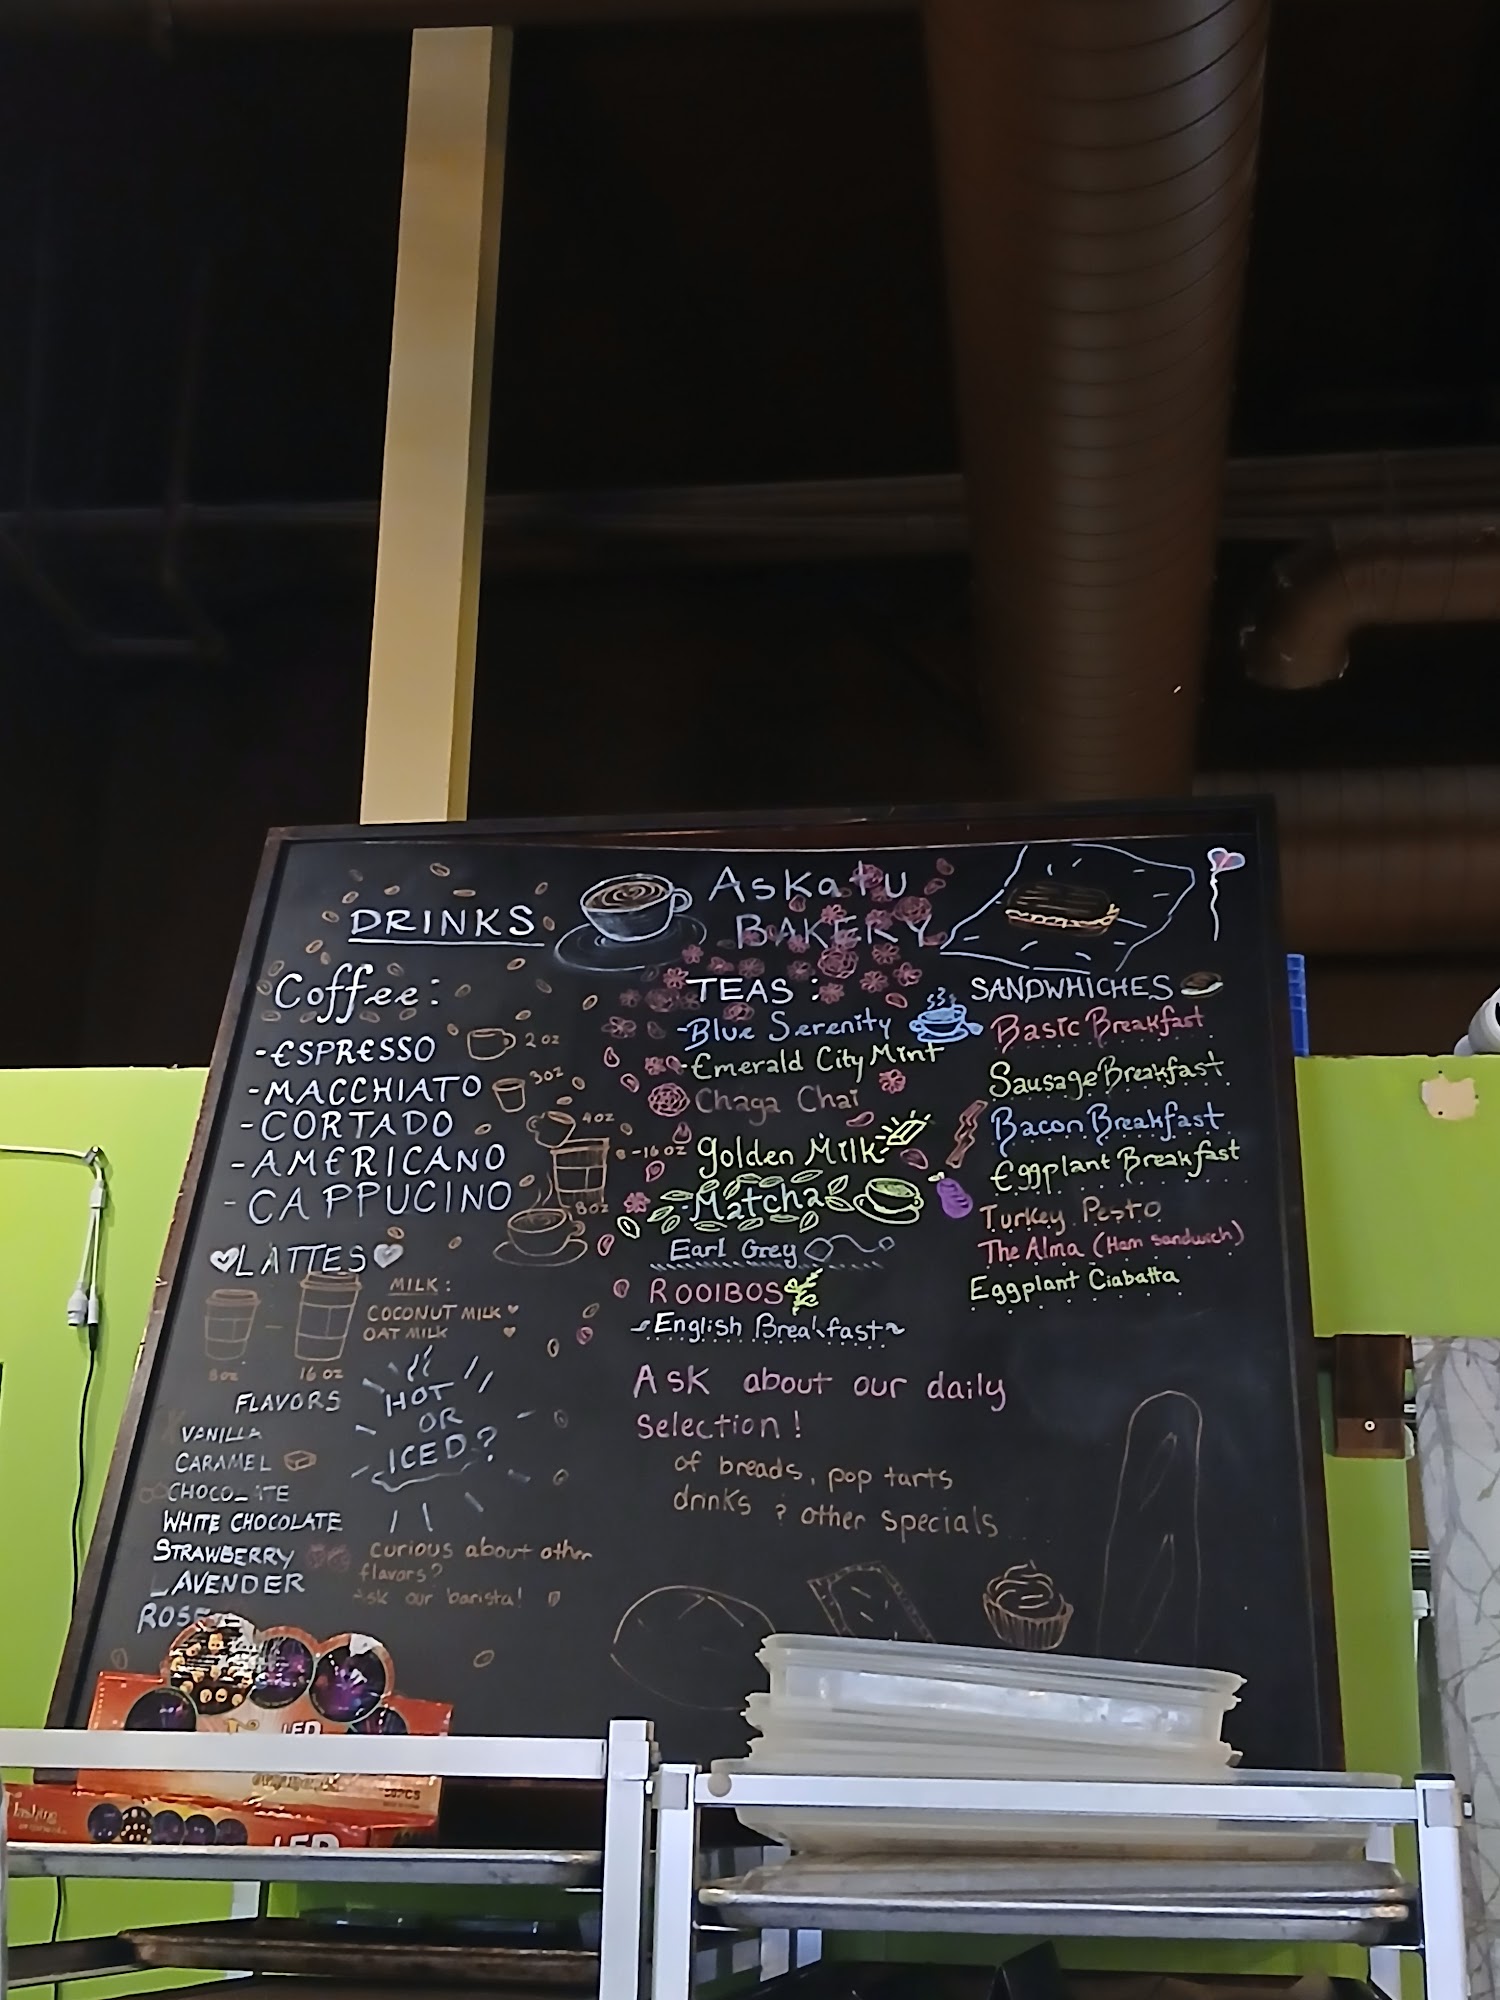 DRINKS
Askatu
BAKERY
Coffee:
-ESPRESSO 2oz
-MACCHIATO 3oz
-CORTADO 4oz
-AMERICANO 8-16oz
-CAPPUCINO 8oz
LATTES
8oz - 16oz
MILK:
COCONUT MILK
OAT MILK
FLAVORS
VANILLA
CARAMEL
CHOCOLATE
WHITE CHOCOLATE
STRAWBERRY
LAVENDER
ROSE
HOT
OR
ICED?
curious about other
flavors?
Ask our barista!
TEAS:
-Blue Serenity
-Emerald City Mint
Chaga Chai
golden Milk
-Matcha
Earl Grey
ROOIBOS
~English Breakfast~
SANDWHICHES
Basic Breakfast
Sausage Breakfast
Bacon Breakfast
Eggplant Breakfast
Turkey Pesto
The Alma (Ham sandwich)
Eggplant Ciabatta
Ask about our daily
selection!
of breads, pop tarts
drinks & other specials
LED
50PCS
LED